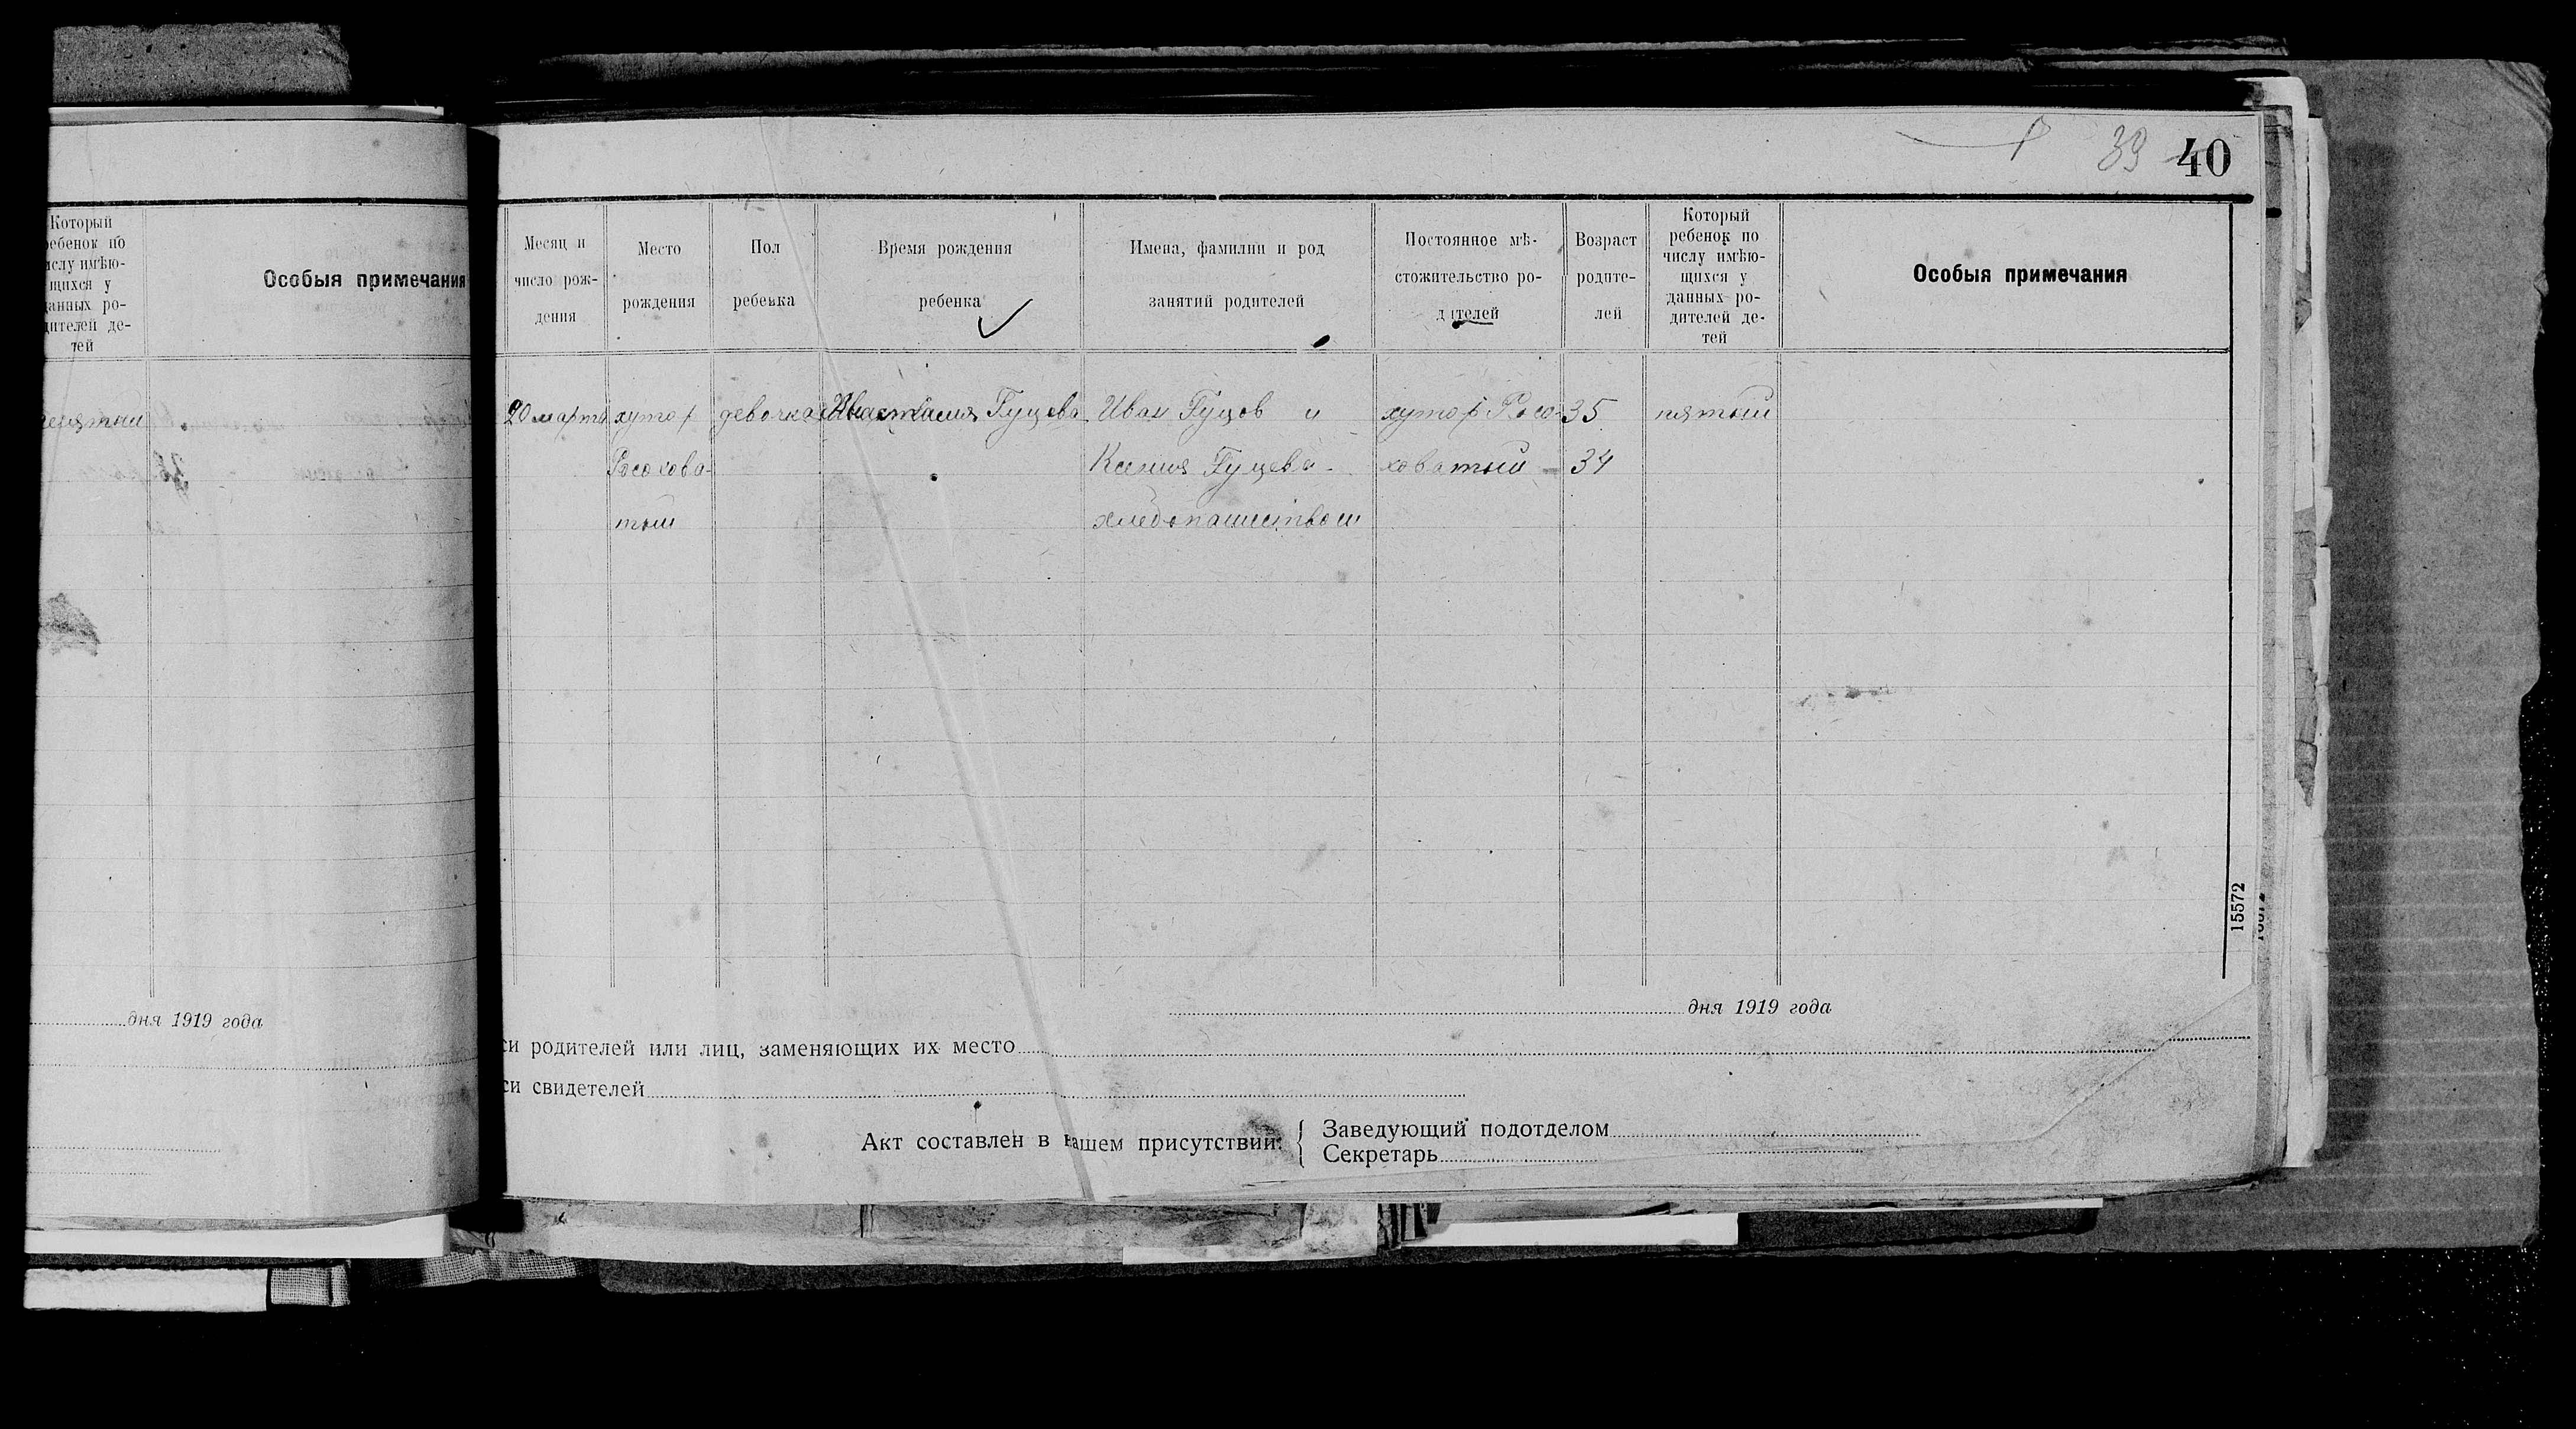 39 40
Который
ребенок по
числу имѣю-
щихся у
данных ро-
дителей де-
тей
Особыя примечания
дня 1919 года
Месяц и
число рож-
дения
Место
рождения
Пол
ребенка
Время рождения
ребенка
Имена, фамилии и род
занятий родителей
Постоянное мѣ-
стожительство ро-
дителей
Возраст
родите-
лей
Который
ребенок по
числу имѣю-
щихся у
данных ро-
дителей де-
тей
Особыя примечания
20 марта хутор девочка Анастасия Гуцева Иван Гуцов и хутор Росо- 35 пятый
Росохова- Ксения Гуцева - ховатый - 34
тый хлебопашеством
15572
дня 1919 года
си родителей или лиц, заменяющих их место
си свидетелей
Акт составлен в нашем присутствии:
Заведующий подотделом
Секретарь